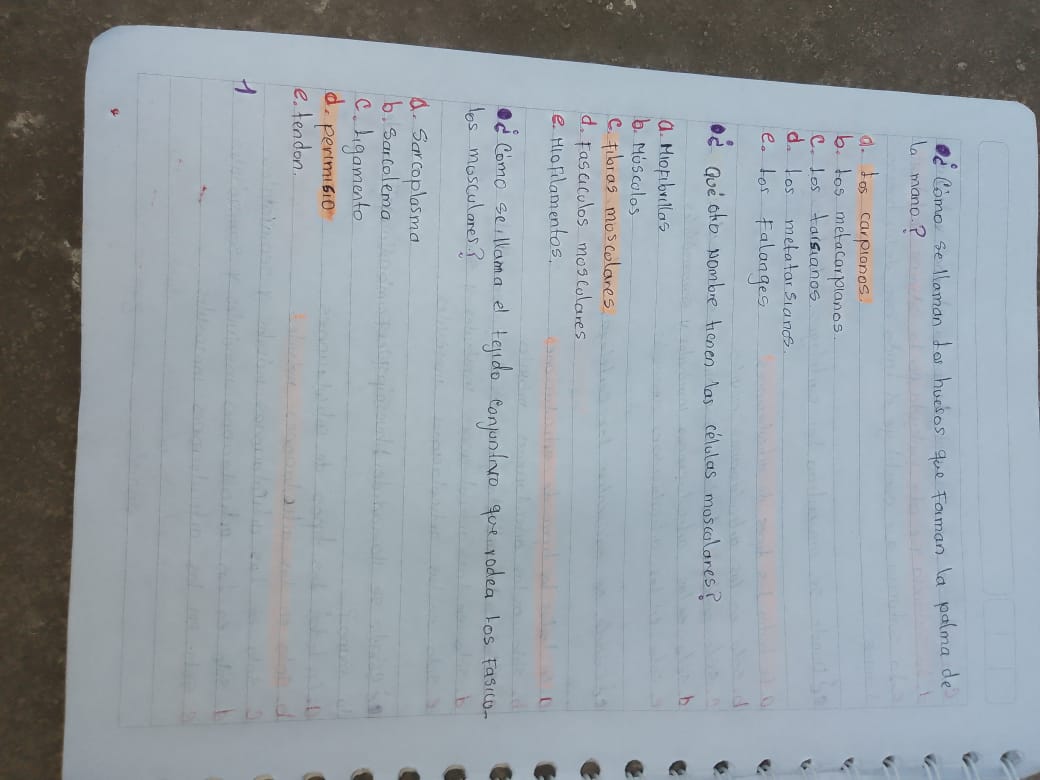 ¿Cómo se llaman los huesos que Forman la palma de
la mano?
a. los carpianos.
b. los metacarpianos.
c. los tarsianos
d. los metatarsianos.
e. los Falanges.
¿ Qué otro Nombre tienen las células musculares?
a. Miofibrillas
b. Músculos
c. fibras musculares.
d. Fascículos musculares
e. Miofilamentos.
¿Cómo se llama el tejido conjuntivo que rodea los Fasícu-
los musculares?
a. Sarcoplasma
b. Sarcolema
c. ligamento
d. perimisio
e. tendon.
1